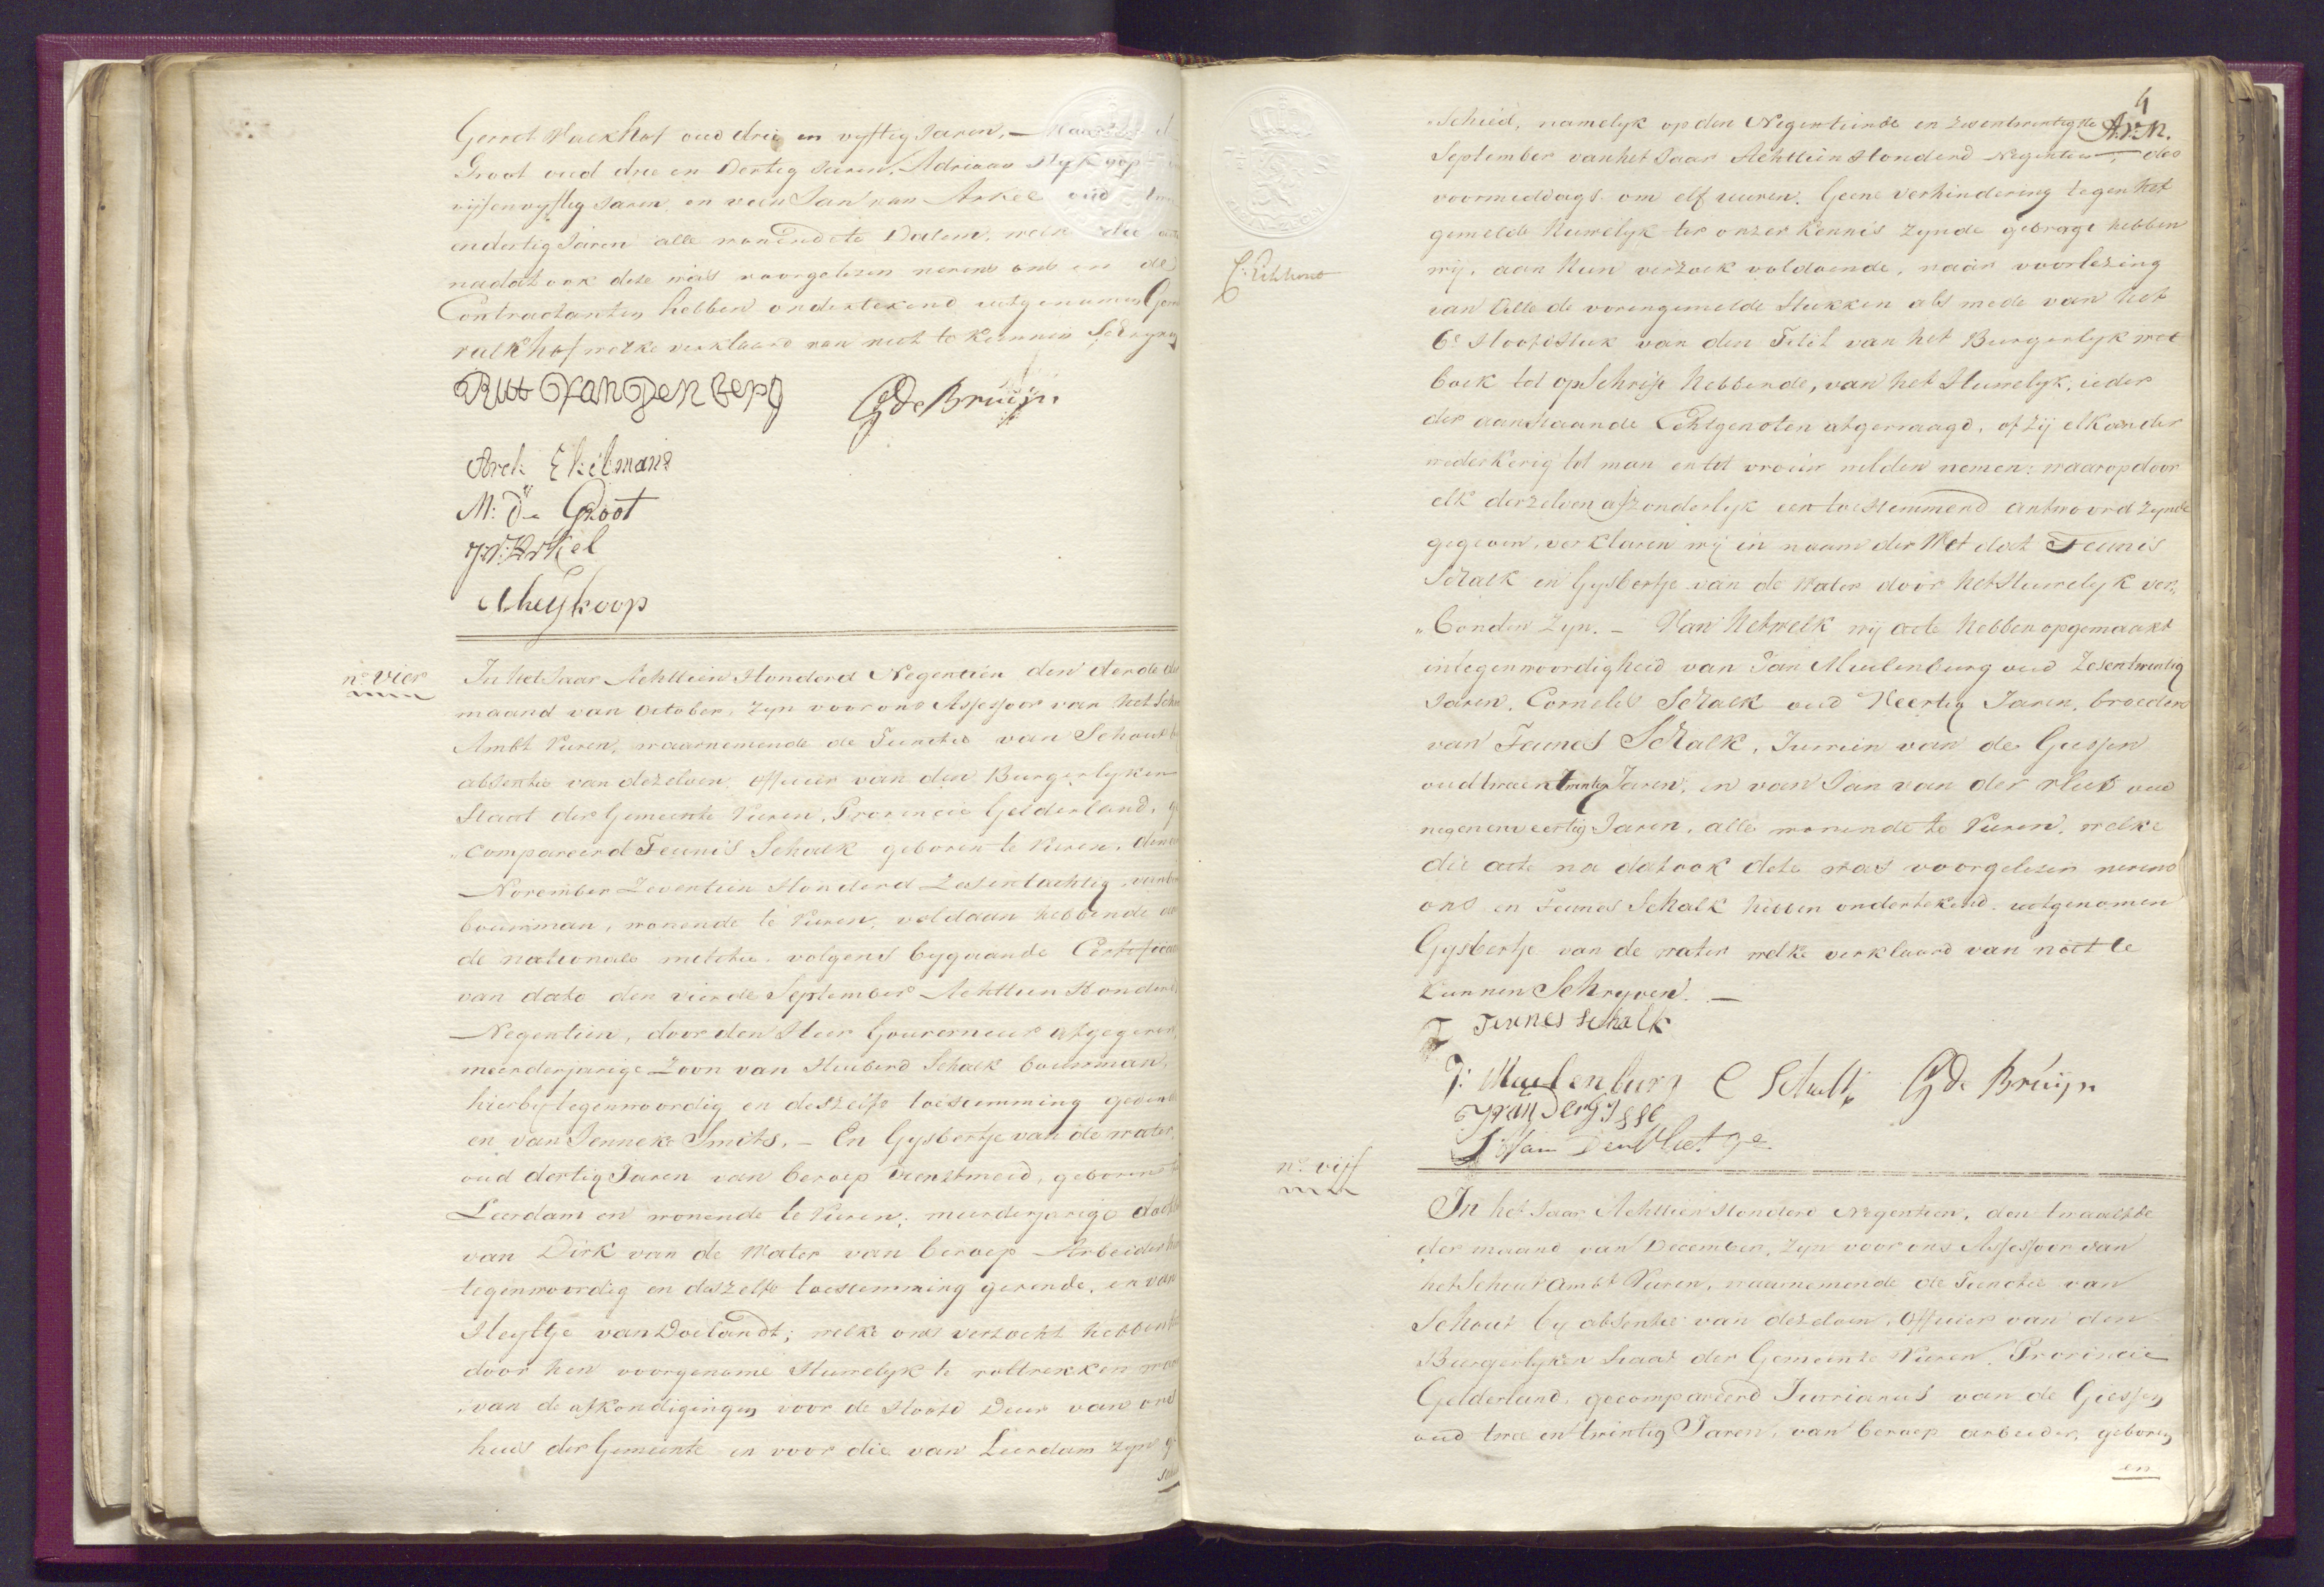 Gerrit Valkhof oud drie en vyftig Jaren, — Maarten d
Groot oud drie en Dertig Jaren, Adriaan Heykoop
vijfenvyftig Jaren en van Jan van Arkel oud
endertig Jaren alle wonende te Dalem, welke die acte
nadat ook deze was voorgelezen nevens ons en de
Contractanten hebben ondertekend uitgenomen Gerrit
valkhof welke verklaard van niet te kunnen Schryven
Rut van den berg G de Bruijn
Arch: Ekelmans
M: de Groot
J V: Arkel
A heykoop
no. vier
In het Jaar Achttien Honderd Negentien den derde der
maand van October, Zyn voor ons Assessor van het Schou
Ambt Vuren, waarnemende de Functie van Schout b
absentie van dezelven Officier van den Burgerlyken
Staat der Gemeente Vuren, Provincie Gelderland, ge
"compareerd Teunis Schalk geboren te Vuren, den
November Zeventien Honderd Zesentachtig, van be
bouwman, wonende te Vuren, voldaan hebbende aan
de nationale militie, volgens bygaande Certificaat
van dato den vierde September Achttien Honderd
Negentien, door den Heer Gouverneur afgegeven,
meerderjarige Zoon van Huiberd Schalk bouwman,
hierby tegenwoordig en deszelfs toestemming gevende
en van Jenneke Smits. — En Gysbertje van de water,
oud dertig Jaren van beroep dienstmeid, geboren te
Leerdam en wonende te Vuren; meerderjarige docht
van Dirk van de Water van beroep Arbeider hier
tegenwoordig en deszelfs toestemming gevende, en van
Heyltje van Doelandt; welke ons verzocht hebben het
door hen voorgenome Huwelyk te voltrekken waar
van de afkondigingen voor de Hoofd Deur van ons
huis der Gemeente en voor die van Leerdam zyn ge
4
A.v.M.
C: Eckhout
"schied, namelyk op den Negentiende en Zesentwintigste
September van het Jaar Achttien Honderd Negentien, des
voormiddags om elf uuren. Geene verhindering tegen het
gemelde Huwelyk ter onzer kennis zynde gebragt hebben
wij, aan Hun verzoek voldoende, naar voorlezing
van Alle de vorengemelde Stukken als mede van het
6e Hoofdstuk van den Titel van het Burgerlyk wet
boek tot opschrift hebbende, van het Huwelyk, ieder
der aanstaande Echtgenoten afgevraagd, of Zij elkander
wederkerig tot man en tot vrouw wilden nemen: waarop door
elk derzelven afzonderlyk een toestemmend antwoord zynde
gegeven, verklaren wij in naam der Wet dat Teunis
Schalk en Gysbertje van de Water door het Huwelyk ver„
„bonden Zyn. — Van Hetwelk wij acte hebben opgemaakt
in tegenwoordigheid van Jan Muilenburg oud Zesentwintig
Jaren, Cornelis Schalk oud Veertig Jaren, broeders
van Teunes Schalk, Jurrien van de Giessen
oud tweentwintig Jaren, en van Jan van der vliet oud
negenenveertig Jaren, alle wonende te Vuren, welke
die acte na dat ook deze was voorgelezen nevens
ons en Teunes Schalk hebben ondertekend. uitgenomen
Gysbertje van de water welke verklaard van niet te
kunnen Schryven. —
T Teunes schalk
J: Muelenburg C Schalk G de Bruijn
J van der gisse
J Van Der Vliet
no. vijf
In het Jaar Achttien Honderd Negentien, den twaalfde
der maand van December, Zyn voor ons Assessor van
het Schout ambt Vuren, waarnemende de Functie van
Schout by absentie van dezelven, Officier van den
Burgerlyken Staat der Gemeente Vuren, Provincie
Gelderland, gecompareerd Jurrianus van de Giessen
oud twee en twintig Jaren, van beroep arbeider, geboren
en